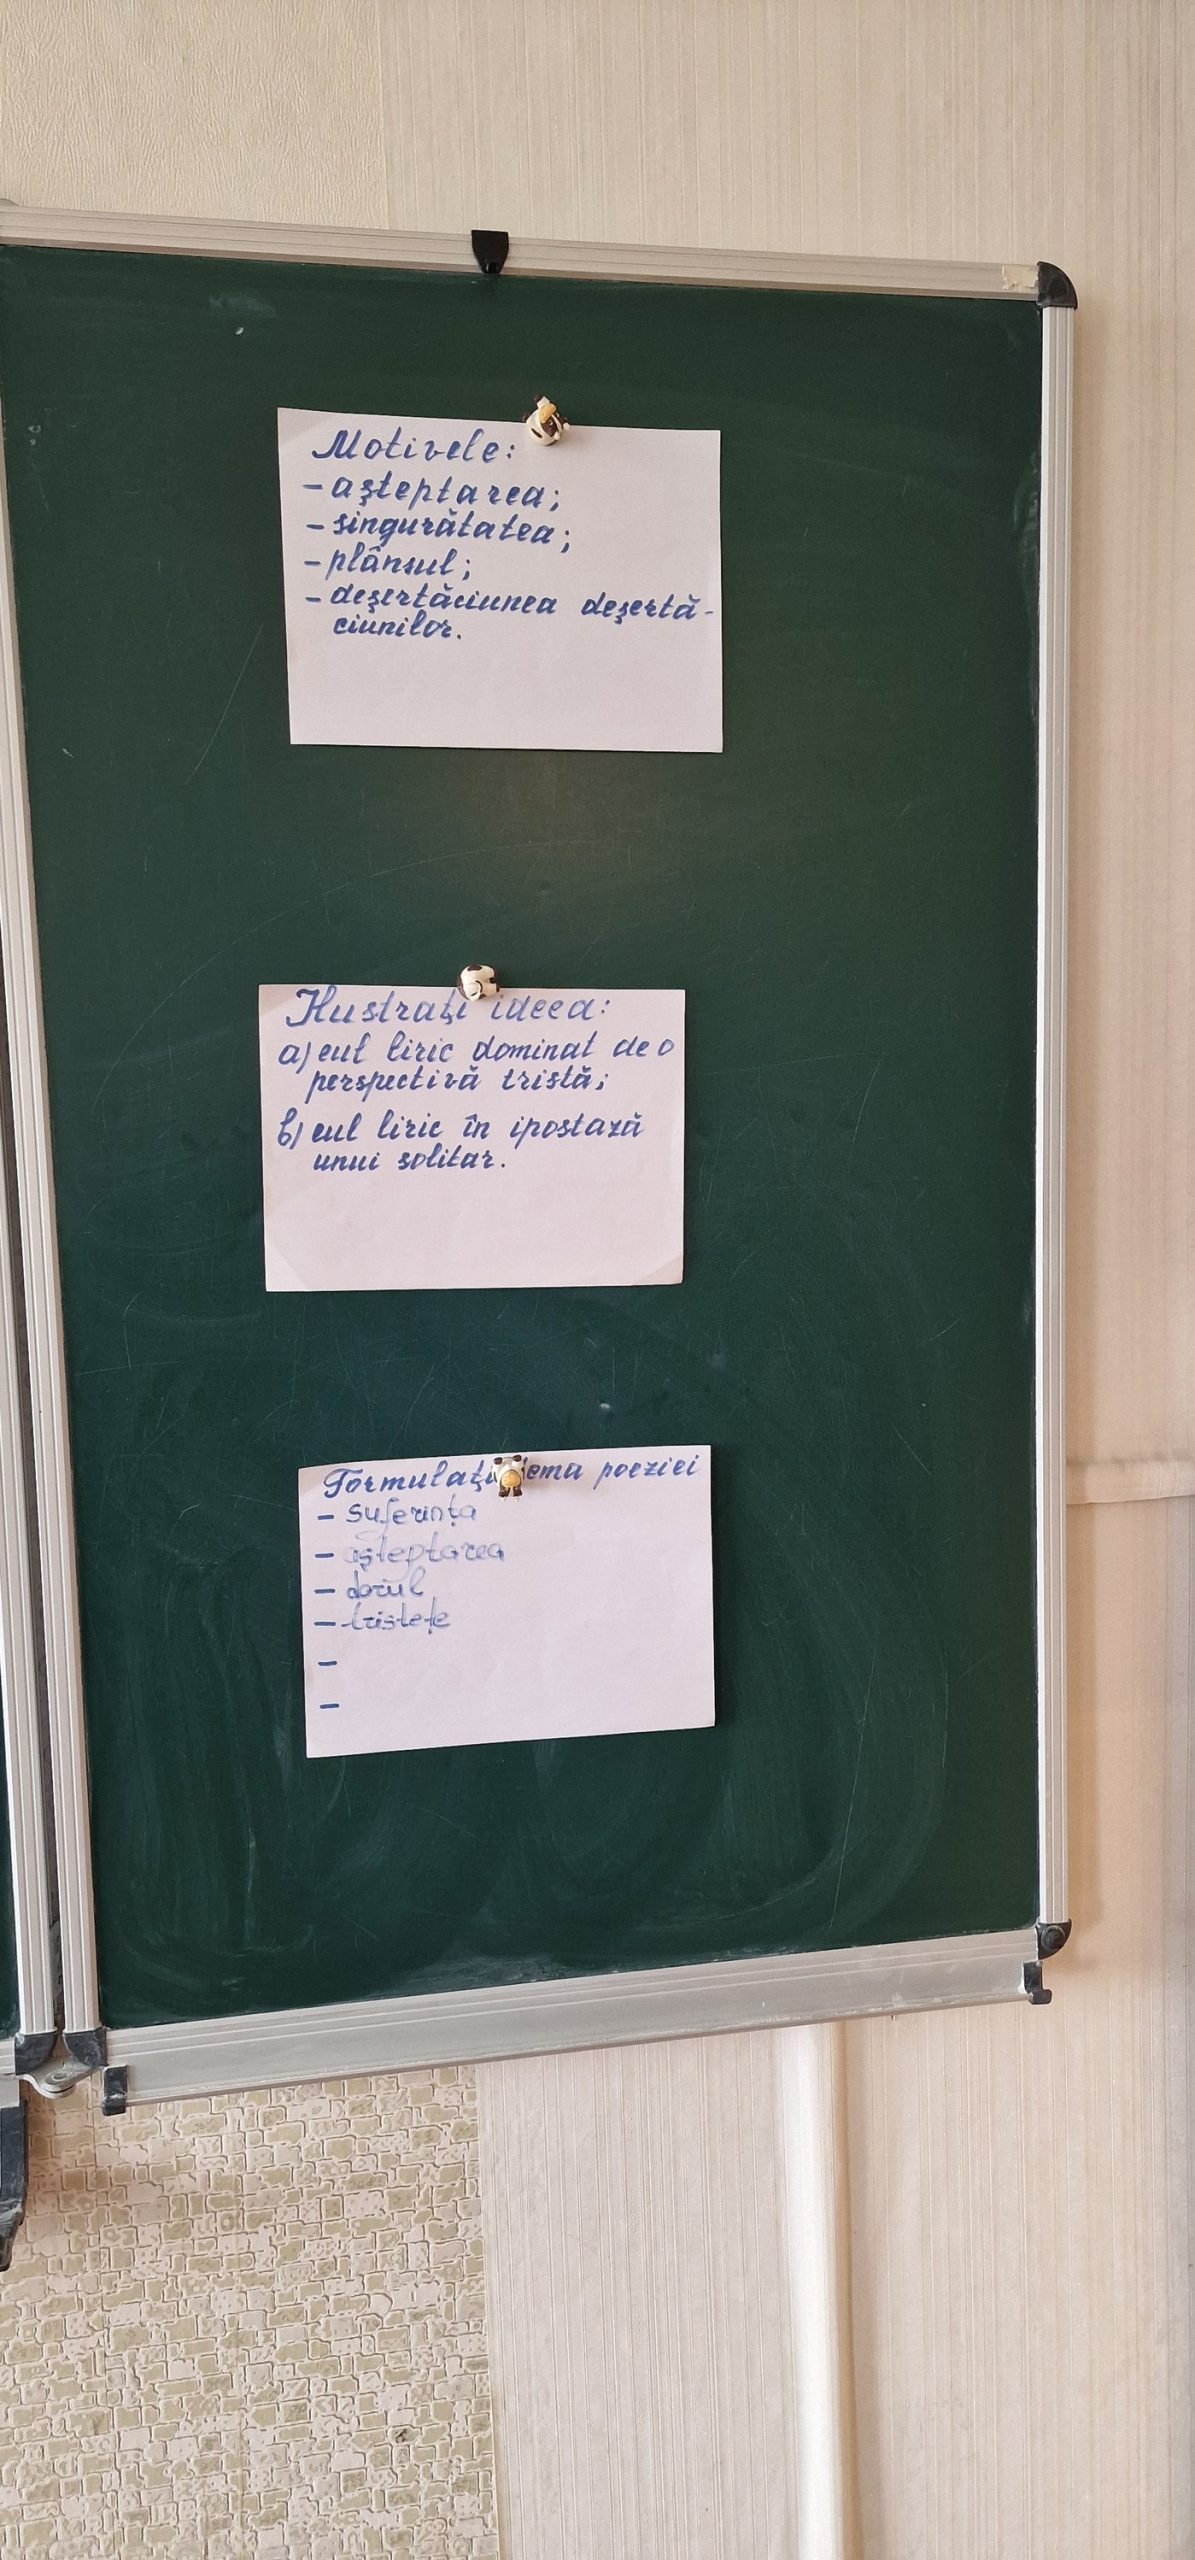 Motivele:
- aşteptarea;
- singurătatea;
- plânsul;
- deşertăciunea deşertă-
ciunilor.
Ilustraţi ideea:
a) eul liric dominat de o
perspectivă tristă;
b) eul liric în ipostază
unui solitar.
Formulaţi tema poeziei
- suferința
- aşteptarea
- dorul
- tristețe
-
-